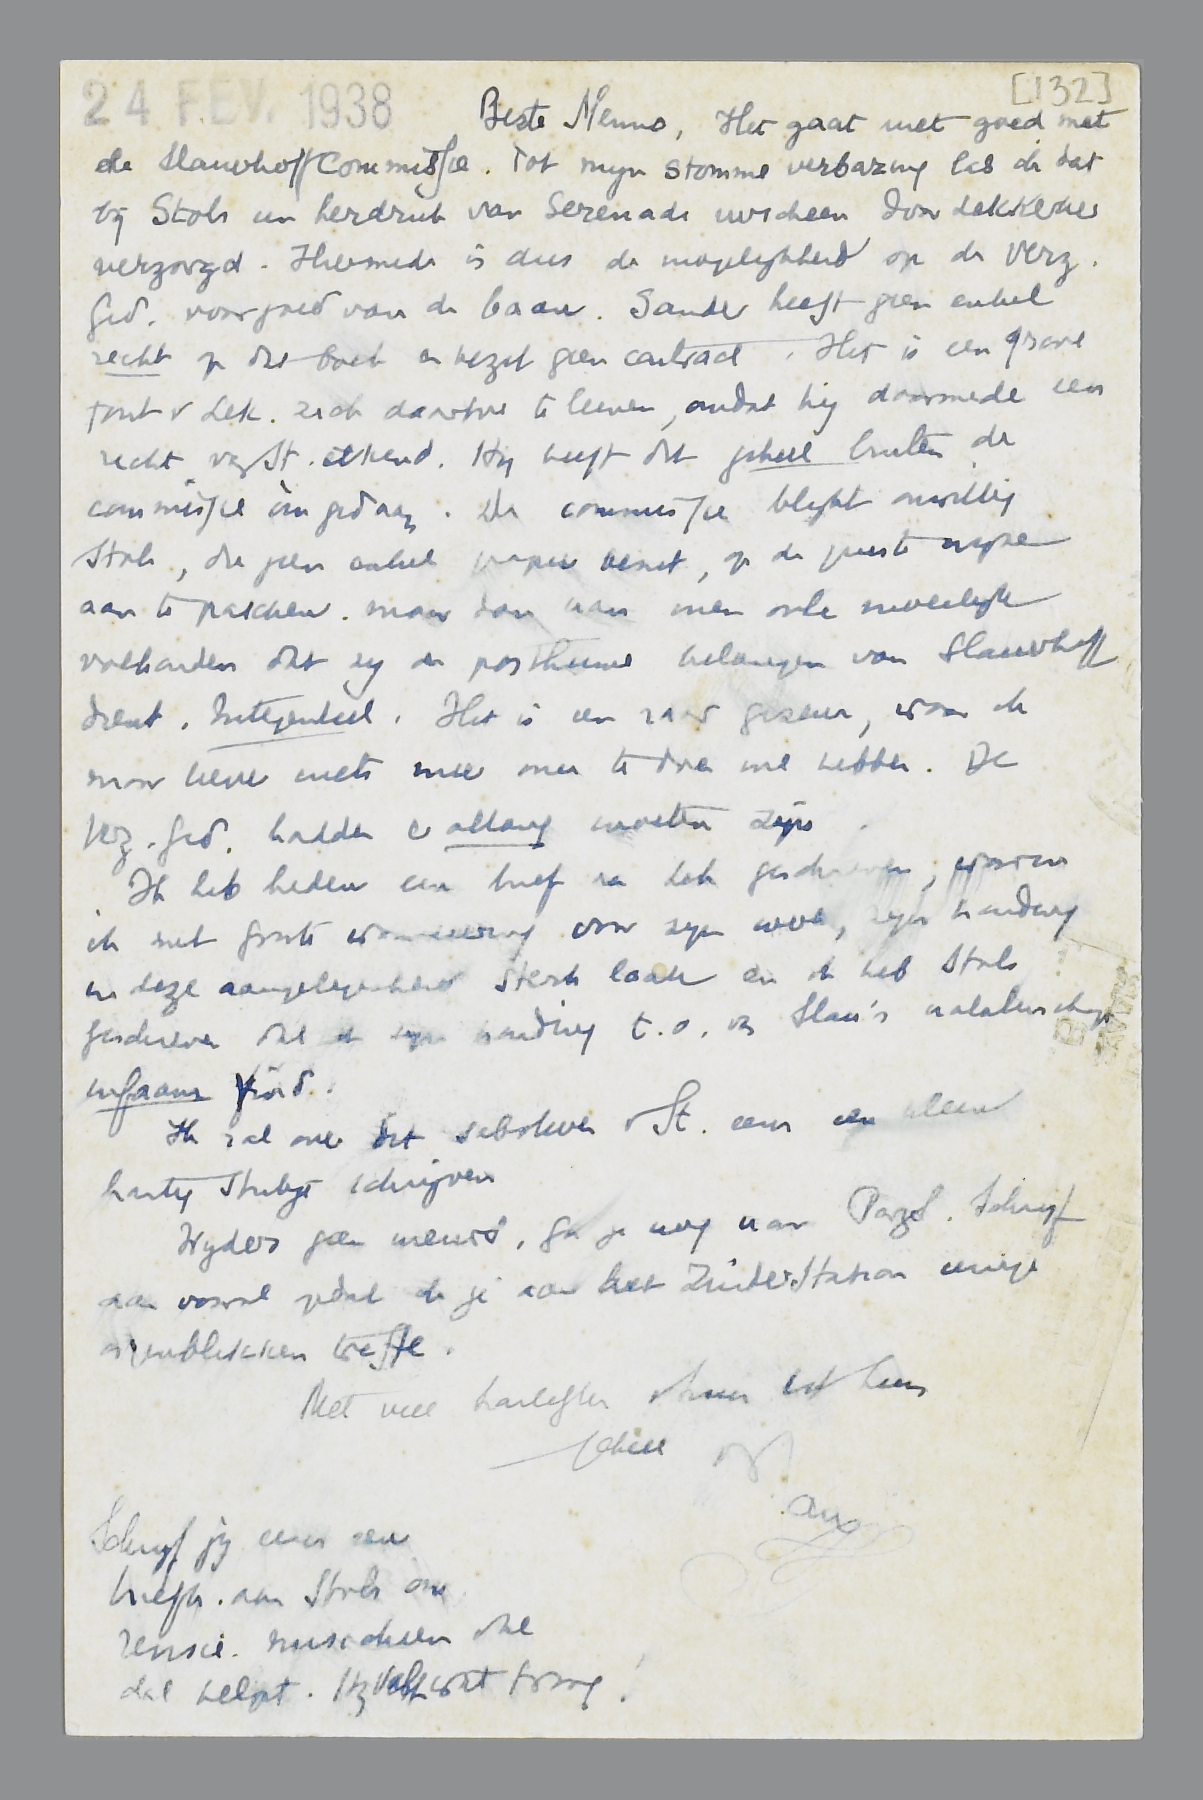 24 FEV. 1938
[132]
Beste Menno, Het gaat niet goed met
de Slauerhoff Commissie. Tot mijn stomme verbazing las ik dat
bij Stols een herdruk van Serenade verscheen door Lekkerker
verzorgd. Hiermede is dus de mogelijkheid op de Verz.
Ged. voorgoed van de baan. Sander heeft geen enkel
recht op dit boek en bezit geen contract. Het is een grove
fout v Lek. zich daartoe te leenen, omdat hij daarmede een
recht van St. erkend. Hij heeft dit geheel buiten de
commissie om gedaan. De commissie blijkt onwillig
Stols, die geen enkel papier bezit, op de juiste wijze
aan te pakken. maar dan kan men ook moeielijk
volhouden dat zij de posthume belangen van Slauerhoff
dient. Integendeel. Het is een raar gezeur, waar ik
maar liever niets mee meer te doen wil hebben. De
Verz. Ged. hadden er allang moeten zijn.
Ik heb heden een brief aan Lek geschreven, waarin
ik met groote waardeering voor zijn werk, zijn handwijze
in deze aangelegenheid sterk laak en ik heb Stols
geschreven dat ik zijn houding t.o. v Slau's nalatenschap
infaam vind.
Ik zal over dit gebeuren v St. eens een kleine
hartig stukje schrijven
Vrijders geen nieuws. Ga je nog naar Parijs. Schrijf
dan vooral zodat ik je aan het Zuiderstation eenige
oogenblikken treffe.
Met veel hartelijks ook aan het huis
geheel
Schrijf jij eens een
briefje aan Stols om
revisie. misschien dat
dat helpt. Hij is wat bang!